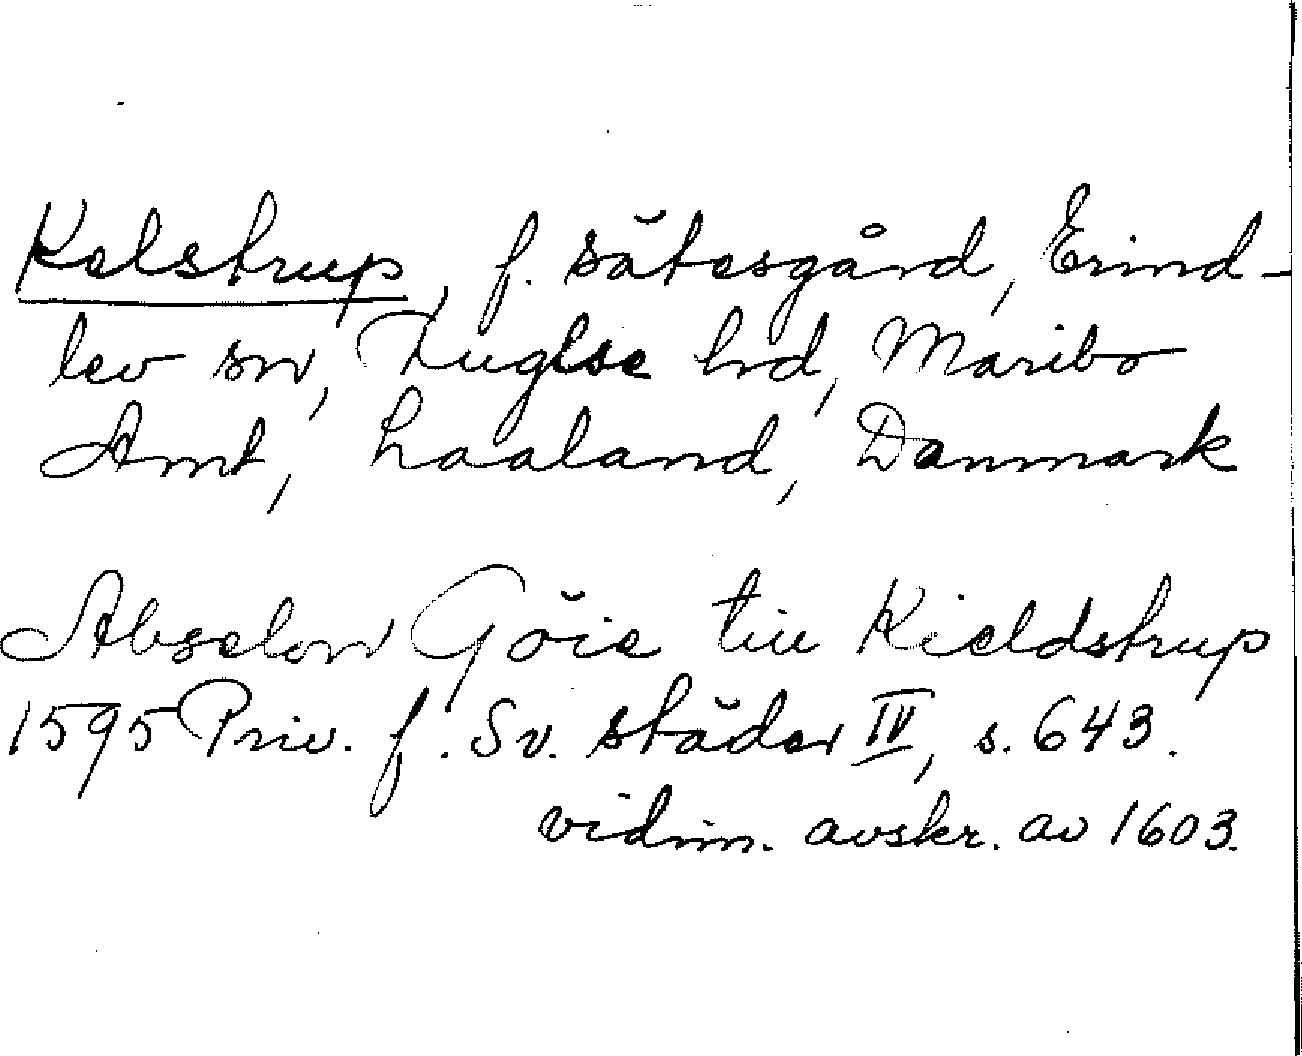 Kelstrup, f. sätesgård, Erind-
lev sn, Fuglse hrd, Maribo
Amt, Laaland, Danmark
Abselon Göie till Kieldstrup
1595 Priv. f. Sv. städer IV, s. 643.
vidim. avskr. av 1603.